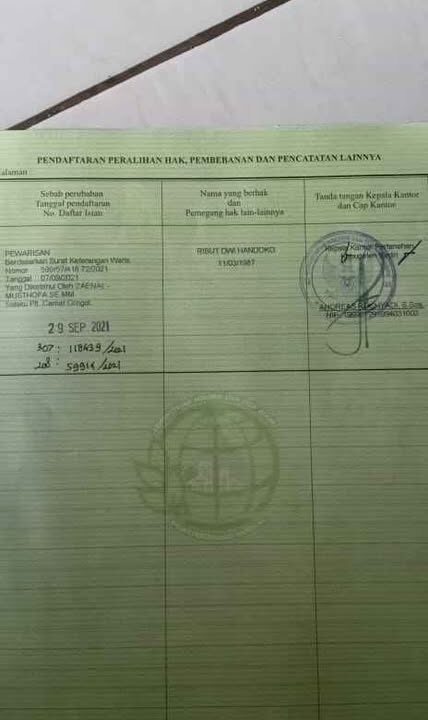 PENDAFTARAN PERALIHAN HAK, PEMBEBANAN DAN PENCATATAN LAINNYA
alaman
Sebab perubahan
Tanggal pendaftaran
No. Daftar Isian
Nama yang berhak
dan
Pemegang hak lain-lainnya
Tanda tangan Kepala Kantor
dan Cap Kantor
PEWARISAN
Berdasarkan Surat Keterangan Waris
Nomor
Tanggal 07/09/2021
Yang Diketahui Oleh ZAENAL
MUSTHOFA.SE.MM
Selaku Plt. Camat
29 SEP 2021
307 : 118439/2021
208 : 59914/2021
RIBUT DWI HANDOKO
11/03/1987
Kepala Kantor Pertanahan
Kabupaten